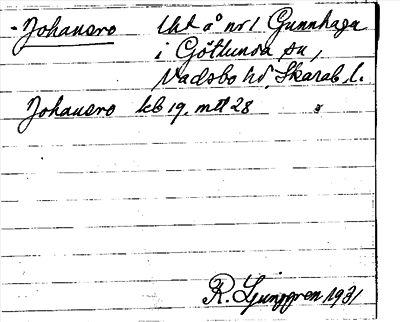 - Johansro lht å nr 1 Gunnhaga
i Götlunda sn,
Vadsbo hd, Skarab. l.
Johansro kb 19. mtl 28 "
R. Ljunggren 1931